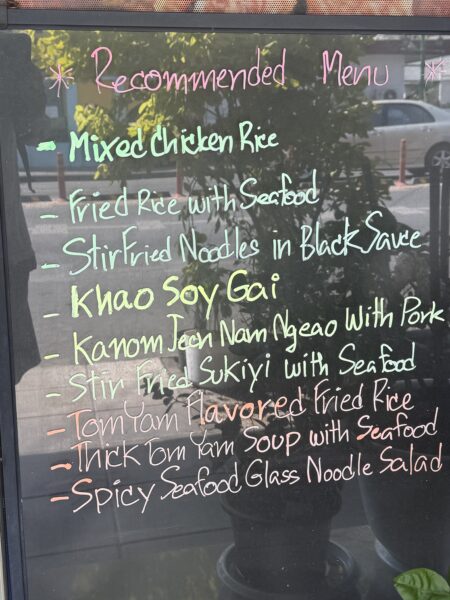 * Recommended Menu *
- Mixed Chicken Rice
- Fried Rice with Seafood
- Stir Fried Noodles in Black Sauce
- Khao Soy Gai
- Kanom Jeen Nam Ngeao With Pork
- Stir Fried Sukiyi with Seafood
- Tom Yam Flavored Fried Rice
- Thick Tom Yam Soup with Seafood
- Spicy Seafood Glass Noodle Salad